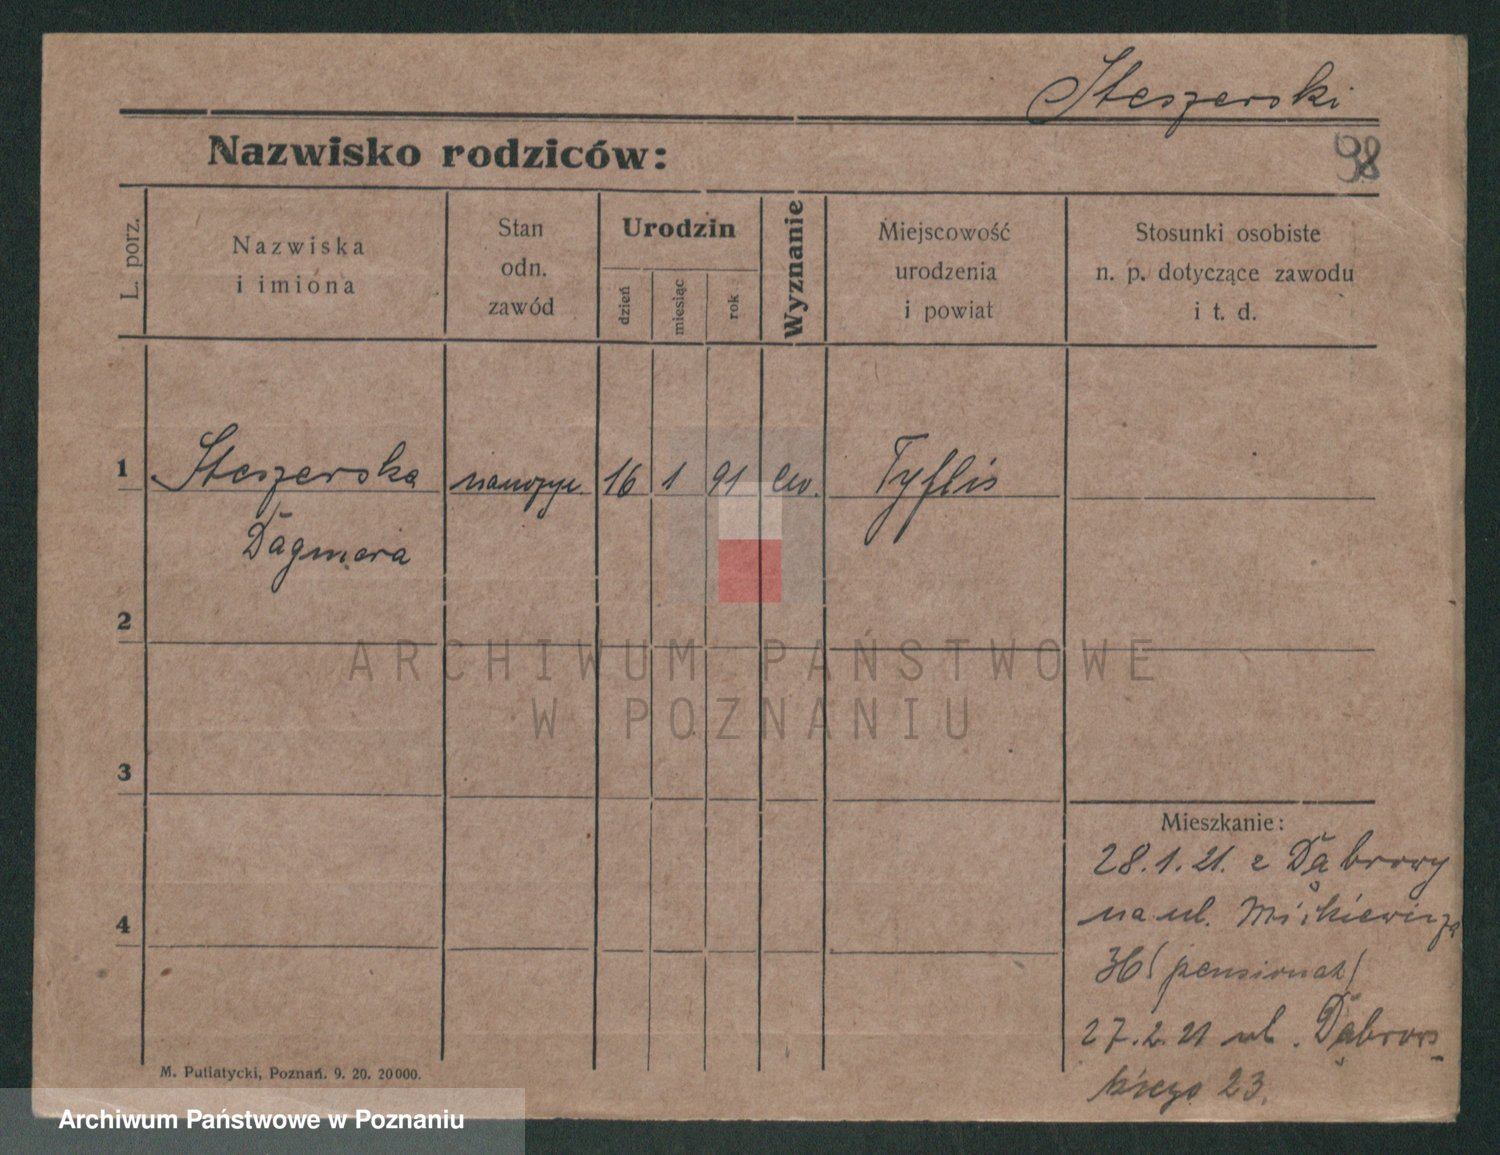 Steszerski
98
Nazwisko rodziców:
L. porz.
Nazwiska
i imiona
Stan
odn.
zawód
Urodzin
dzień
miesiąc
rok
Wyznanie
Miejscowość
urodzenia
i powiat
Stosunki osobiste
n. p. dotyczące zawodu
i t. d.
1 Steszerska nauczyc. 16 1 91 ew. Tyflis
Dagmara
2
3
4
Mieszkanie:
28.1.21. z Dąbrowy
na ul. Mickiewicza
36 (pensionat)
27.2.21 ul. Dąbrows-
kiego 23.
M. Putiatycki, Poznań. 9. 20. 20000.
ARCHIWUM PAŃSTWOWE
W POZNANIU
Archiwum Państwowe w Poznaniu